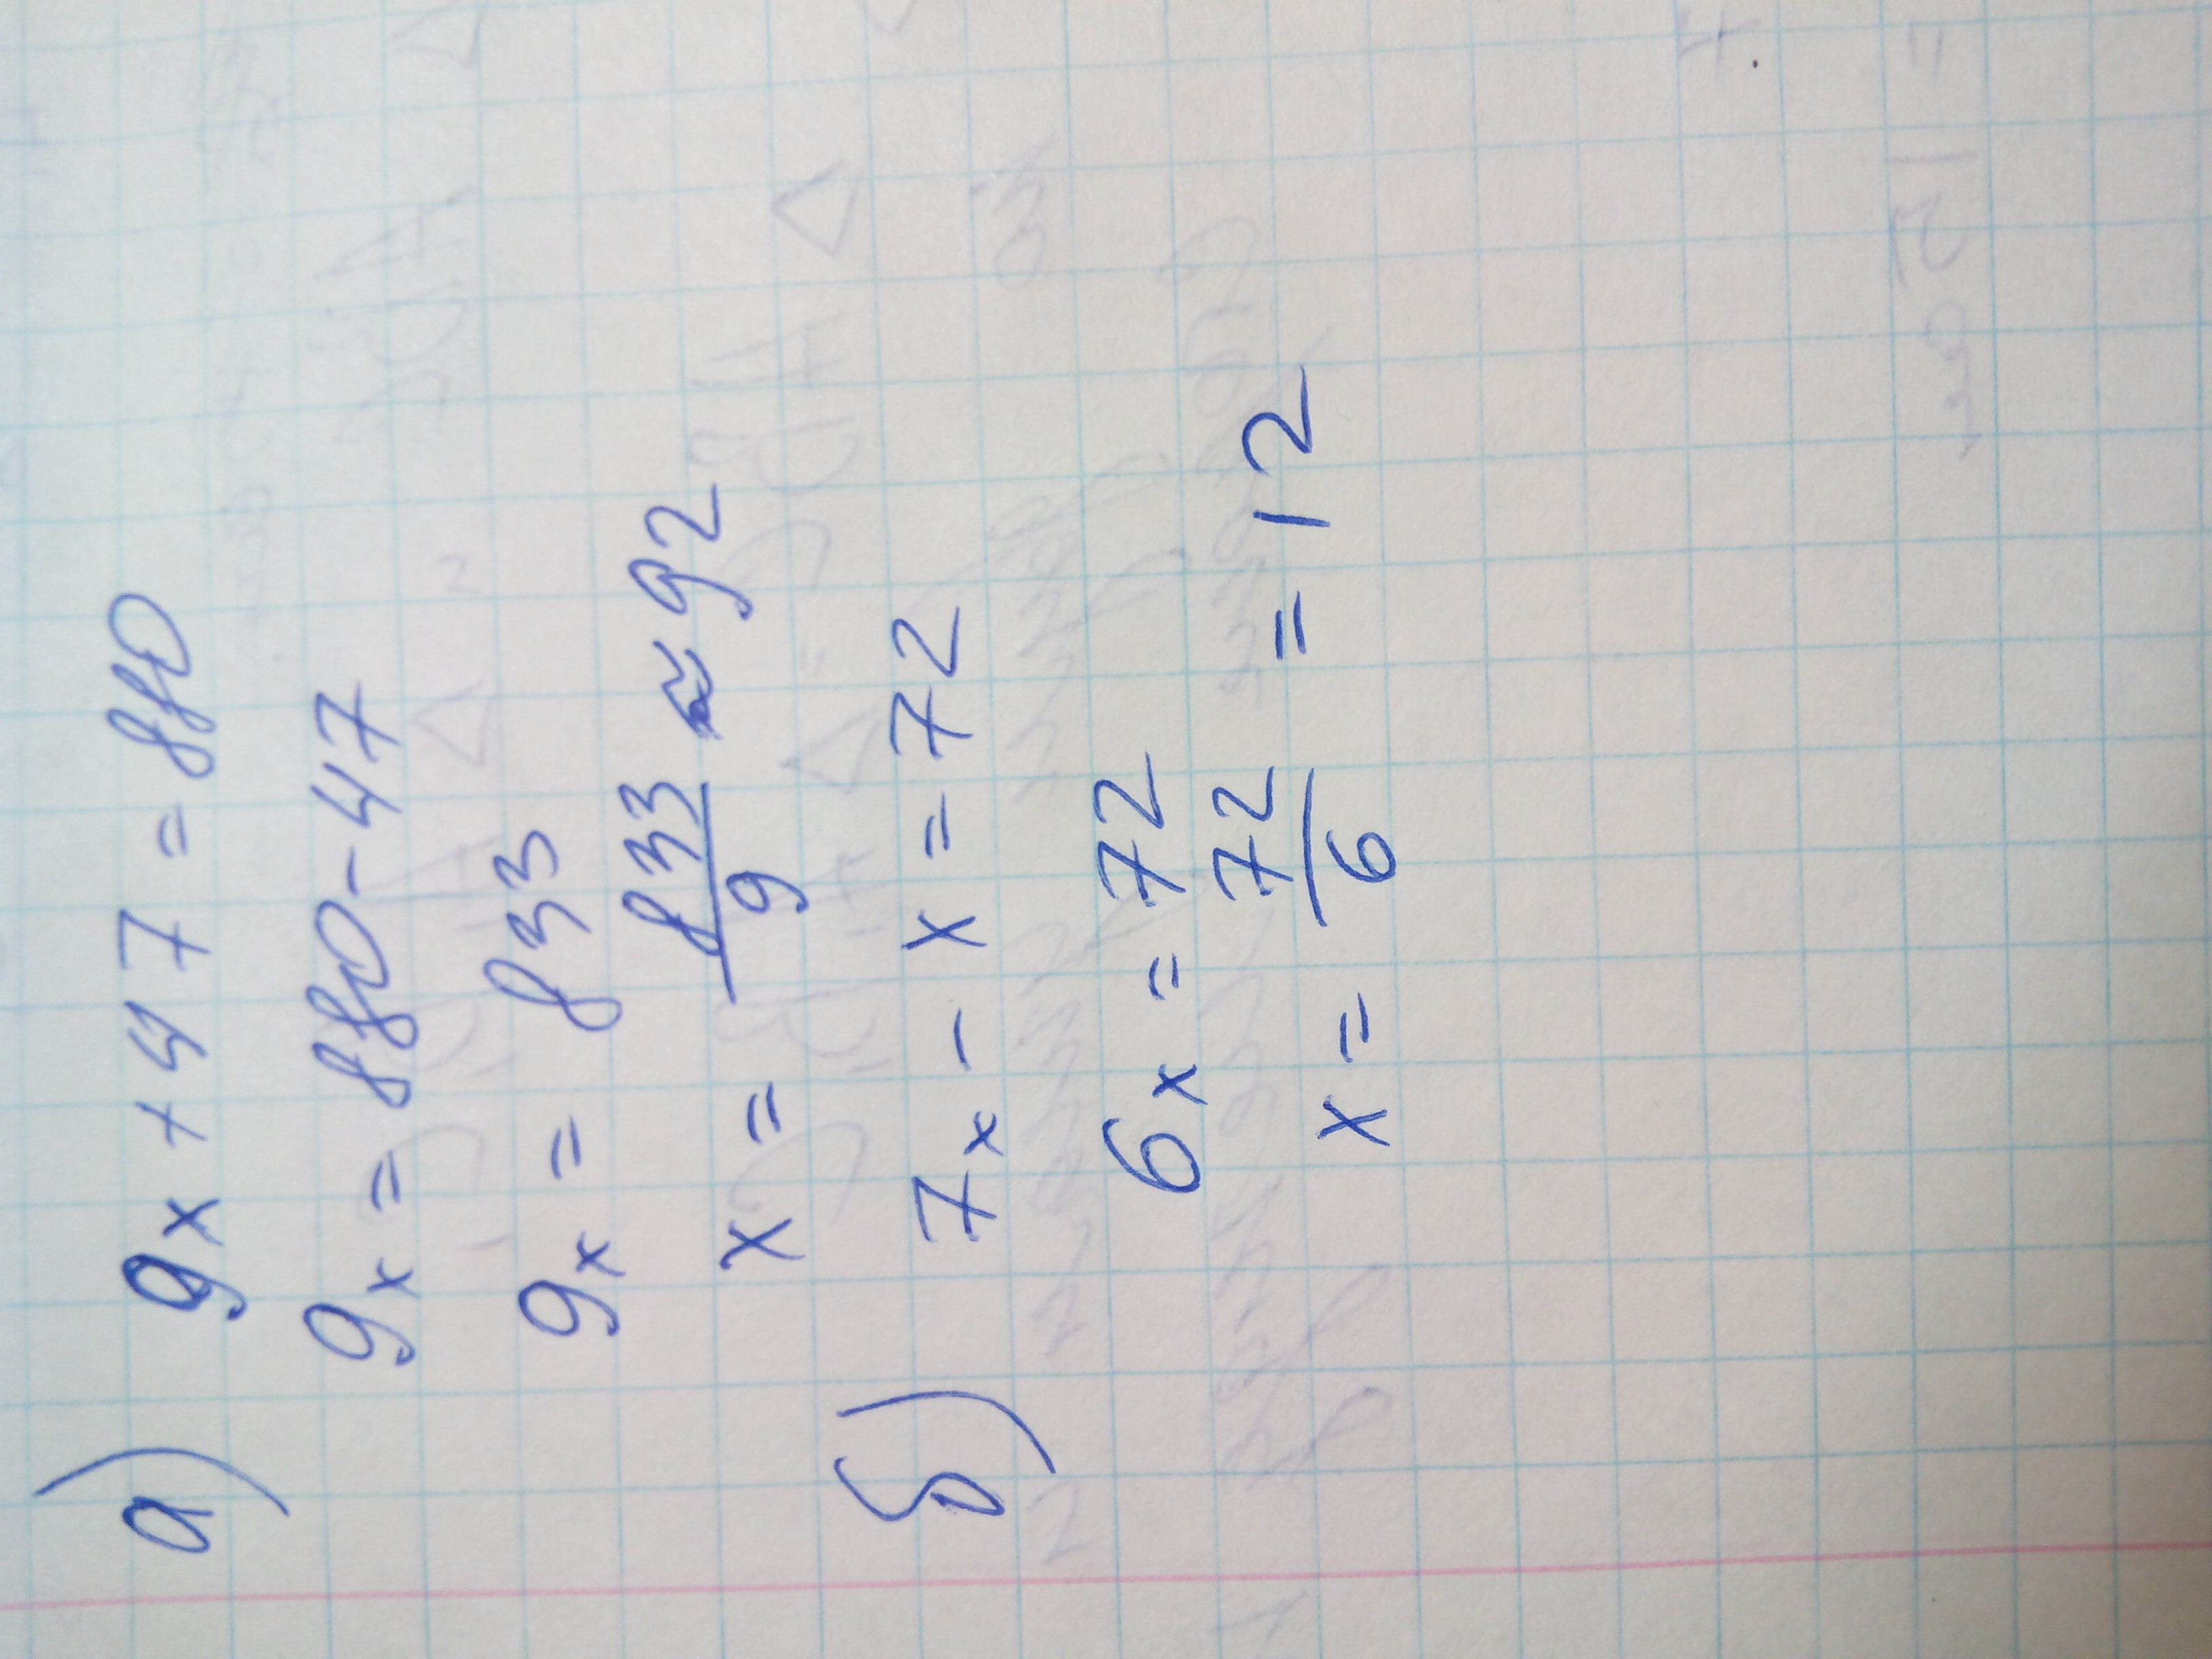 а) 9x + 47 = 880
9x = 880 - 47
9x = 833
x = 833/9 ≈ 92
б) 7x - x = 72
6x = 72
x = 72/6 = 12